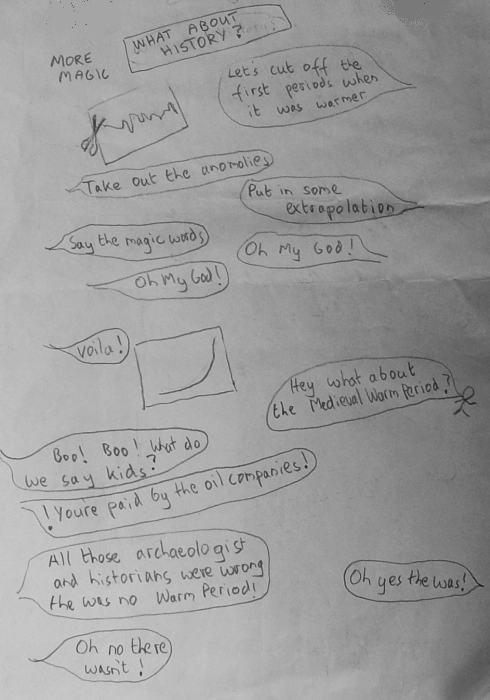 WHAT ABOUT
HISTORY?
MORE
MAGIC
Let's cut off the
first periods when
it was warmer
Take out the anomolies
Put in some
extrapolation
Say the magic words
Oh My God!
Oh My God!
Voila!
Hey what about
the Medieval Warm Period?
Boo! Boo! What do
we say kids?
! You're paid by the oil companies!
All those archaeologist
and historians were wrong
the was no Warm Period!
Oh yes the was!
Oh no there
wasn't!